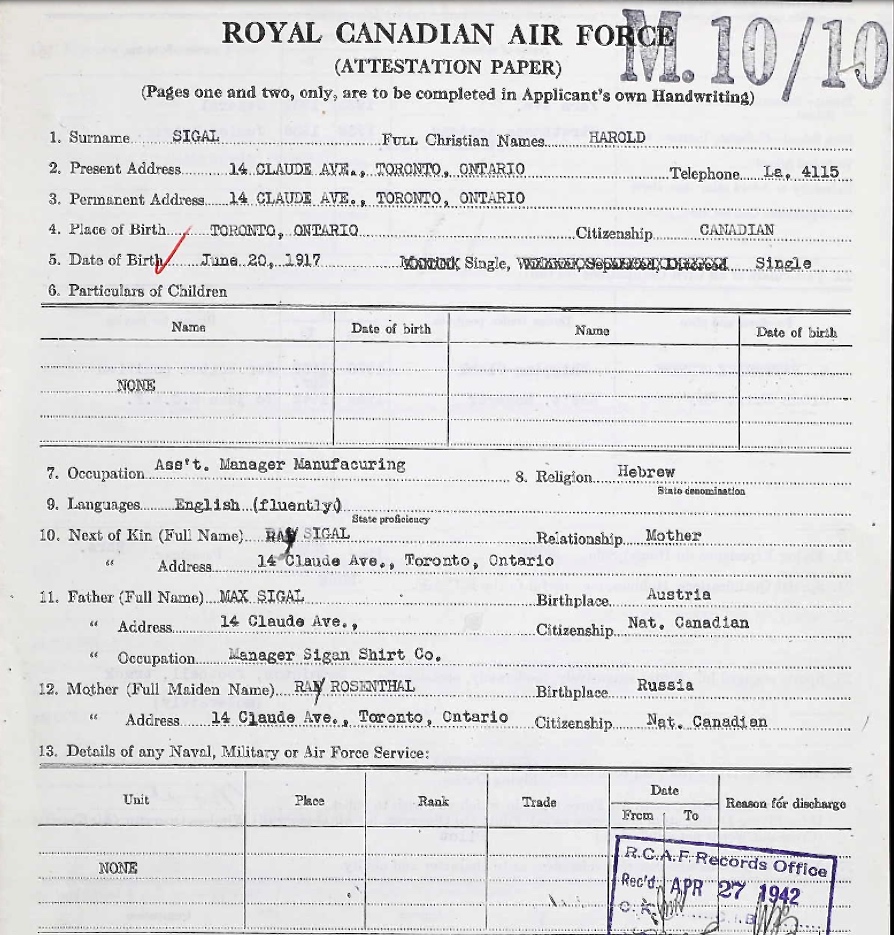 ROYAL CANADIAN AIR FORCE
M. 10/10
(ATTESTATION PAPER)
(Pages one and two, only, are to be completed in Applicant's own Handwriting)
1. Surname SIGAL FULL Christian Names HAROLD
2. Present Address 14 CLAUDE AVE., TORONTO, ONTARIO Telephone La, 4115
3. Permanent Address 14 CLAUDE AVE., TORONTO, ONTARIO
4. Place of Birth TORONTO, ONTARIO Citizenship CANADIAN
5. Date of Birth June 20, 1917 Single, Single
6. Particulars of Children
Name Date of birth Name Date of birth
NONE
7. Occupation Ass't. Manager Manufacuring 8. Religion Hebrew
State denomination
9. Languages English (fluently)
State proficiency
10. Next of Kin (Full Name) SIGAL Relationship Mother
" Address 14 Claude Ave., Toronto, Ontario
11. Father (Full Name) MAX SIGAL Birthplace Austria
" Address 14 Claude Ave., Citizenship Nat. Canadian
" Occupation Manager Sigan Shirt Co.
12. Mother (Full Maiden Name) RAY ROSENTHAL Birthplace Russia
" Address 14 Claude Ave., Toronto, Ontario Citizenship Nat. Canadian
13. Details of any Naval, Military or Air Force Service:
Unit Place Rank Trade Date Reason for discharge
From To
NONE
R.C.A.F. Records Office
Rec'd. APR 27 1942